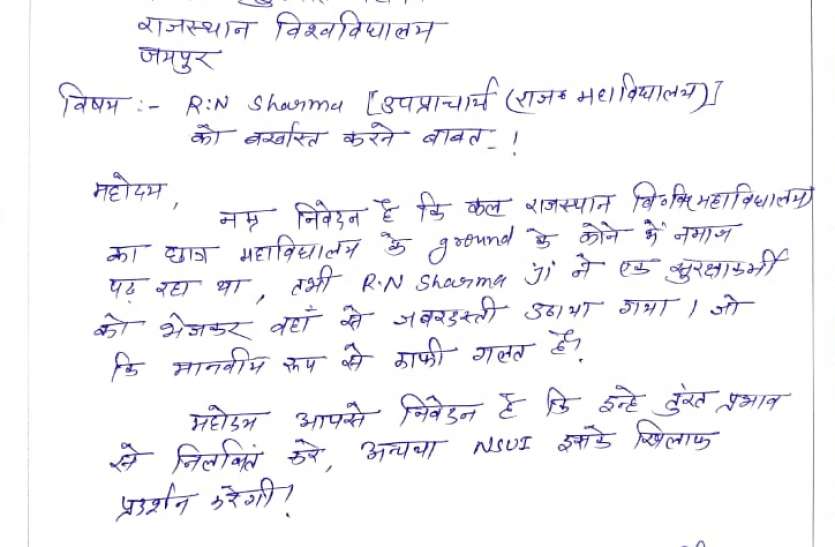 राजस्थान विश्वविद्यालय
जयपुर
विषय :- R.N Sharma [उपप्राचार्य (राज॰ महाविद्यालय)]
को बर्खास्त करने बाबत_!
महोदय,
नम्र निवेदन है कि कल राजस्थान वि॰वि(महाविद्यालय)
का छात्र महाविद्यालय के ground के कोने में नमाज
पढ़ रहा था, तभी R.N Sharma ji ने एक सुरक्षाकर्मी
को भेजकर वहाँ से जबरडस्ती उठाया गया। जो
कि मानवीय रूप से काफी गलत है?
महोदय आपसे निवेदन है कि इन्हे तुंरत प्रभाव
से निलंबित करे, अन्यथा NSUI इसके खिलाफ
प्रदर्शन करेगी!